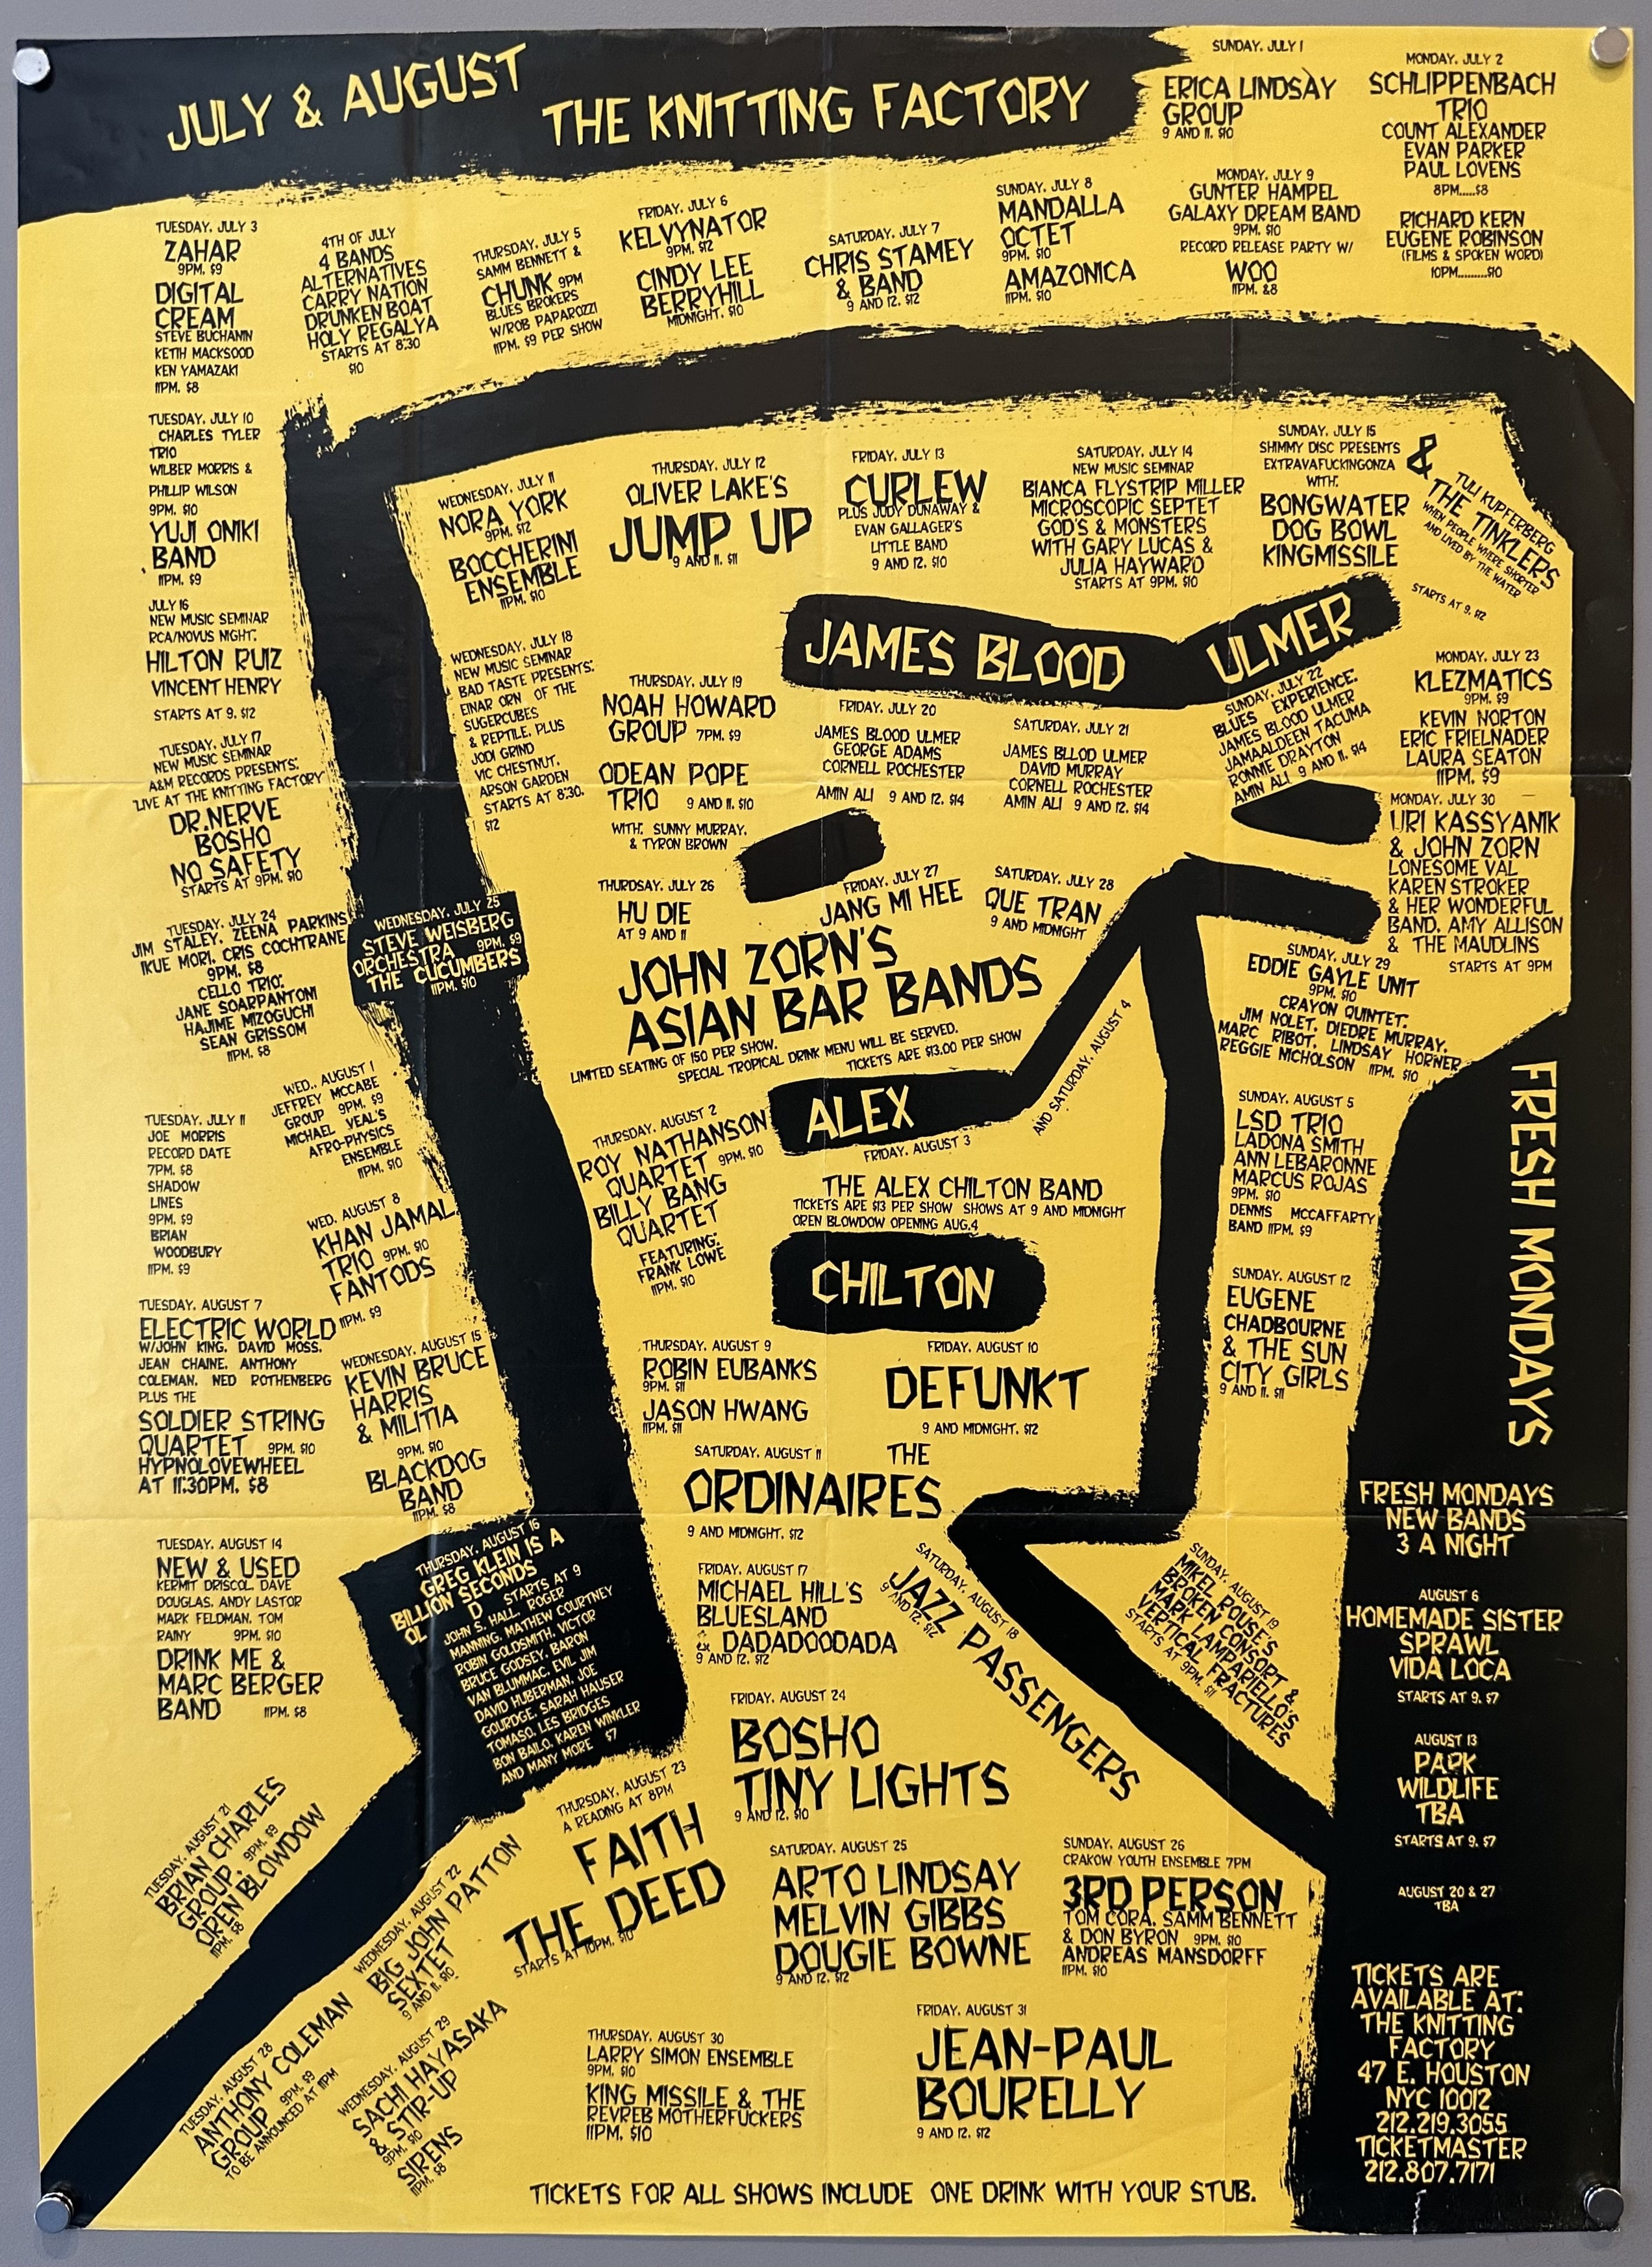 JULY & AUGUST
THE KNITTING FACTORY
SUNDAY, JULY 1
ERICA LINDSAY
GROUP
9 AND 11. $10
MONDAY, JULY 2
SCHLIPPENBACH
TRIO
COUNT ALEXANDER
EVAN PARKER
PAUL LOVENS
8PM.....$8
RICHARD KERN
EUGENE ROBINSON
(FILMS & SPOKEN WORD)
10PM.........$10
TUESDAY, JULY 3
ZAHAR
9PM, $9
DIGITAL
CREAM
STEVE BUCHANIN
KETIH MACKSOOD
KEN YAMAZAKI
11PM, $8
4TH OF JULY
4 BANDS
ALTERNATIVES
CARRY NATION
DRUNKEN BOAT
HOLY REGALYA
STARTS AT 8:30
$10
THURSDAY, JULY 5
SAMM BENNETT &
CHUNK 9PM
BLUES BROKERS
W/ROB PAPAROZZI
11PM, $9 PER SHOW
FRIDAY, JULY 6
KELVYNATOR
9PM, $12
CINDY LEE
BERRYHILL
MIDNIGHT, $10
SATURDAY, JULY 7
CHRIS STAMEY
& BAND
9 AND 12, $12
SUNDAY, JULY 8
MANDALLA
OCTET
9PM, $10
AMAZONICA
11PM, $10
MONDAY, JULY 9
GUNTER HAMPEL
GALAXY DREAM BAND
9PM, $10
RECORD RELEASE PARTY W/
WOO
11PM, &8
TUESDAY, JULY 10
CHARLES TYLER
TRIO
WILBER MORRIS &
PHILLIP WILSON
9PM, $10
YUJI ONIKI
BAND
11PM, $9
WEDNESDAY, JULY 11
NORA YORK
9PM, $12
BOCCHERINI
ENSEMBLE
11PM, $10
THURSDAY, JULY 12
OLIVER LAKE'S
JUMP UP
9 AND 11, $11
FRIDAY, JULY 13
CURLEW
PLUS JUDY DUNAWAY &
EVAN GALLAGER'S
LITTLE BAND
9 AND 12, $10
SATURDAY, JULY 14
NEW MUSIC SEMINAR
BIANCA FLYSTRIP MILLER
MICROSCOPIC SEPTET
GOD'S & MONSTERS
WITH GARY LUCAS &
JULIA HAYWARD
STARTS AT 9PM, $10
SUNDAY, JULY 15
SHIMMY DISC PRESENTS
EXTRAVAFUCKINGONZA
WITH:
BONGWATER
DOG BOWL
KINGMISSILE
&
TULI KUPFERBERG
THE TINKLERS
WHEN PEOPLE WHERE SHORTER
AND LIVED BY THE WATER
STARTS AT 9, $12
JULY 16
NEW MUSIC SEMINAR
RCA/NOVUS NIGHT:
HILTON RUIZ
VINCENT HENRY
STARTS AT 9, $12
TUESDAY, JULY 17
NEW MUSIC SEMINAR
A&M RECORDS PRESENTS:
"LIVE AT THE KNITTING FACTORY"
DR.NERVE
BOSHO
NO SAFETY
STARTS AT 9PM, $10
WEDNESDAY, JULY 18
NEW MUSIC SEMINAR
BAD TASTE PRESENTS:
EINAR ORN OF THE
SUGERCUBES
& REPTILE, PLUS
JODI GRIND
VIC CHESTNUT,
ARSON GARDEN
STARTS AT 8:30,
$12
THURSDAY, JULY 19
NOAH HOWARD
GROUP 7PM, $9
ODEAN POPE
TRIO 9 AND 11, $10
WITH: SUNNY MURRAY,
& TYRON BROWN
JAMES BLOOD ULMER
FRIDAY, JULY 20
JAMES BLOOD ULMER
GEORGE ADAMS
CORNELL ROCHESTER
AMIN ALI 9 AND 12, $14
SATURDAY, JULY 21
JAMES BLLOD ULMER
DAVID MURRAY
CORNELL ROCHESTER
AMIN ALI 9 AND 12, $14
SUNDAY, JULY 22
BLUES EXPERIENCE:
JAMES BLOOD ULMER
JAMAALDEEN TACUMA
RONNIE DRAYTON
AMIN ALI 9 AND 11, $14
MONDAY, JULY 23
KLEZMATICS
9PM, $9
KEVIN NORTON
ERIC FRIELNADER
LAURA SEATON
11PM, $9
TUESDAY, JULY 24
JIM STALEY, ZEENA PARKINS,
IKUE MORI, CRIS COCHTRANE
9PM, $8
CELLO TRIO:
JANE SOARPANTONI
HAJIME MIZOGUCHI
SEAN GRISSOM
11PM, $8
WEDNESDAY, JULY 25
STEVE WEISBERG
ORCHESTRA 9PM, $9
THE CUCUMBERS
11PM, $10
THURDSAY, JULY 26
HU DIE
AT 9 AND 11
FRIDAY, JULY 27
JANG MI HEE
SATURDAY, JULY 28
QUE TRAN
9 AND MIDNIGHT
JOHN ZORN'S
ASIAN BAR BANDS
LIMITED SEATING OF 150 PER SHOW.
SPECIAL TROPICAL DRINK MENU WILL BE SERVED.
TICKETS ARE $13.00 PER SHOW
SUNDAY, JULY 29
EDDIE GAYLE UNIT
9PM, $10
CRAYON QUINTET:
JIM NOLET, DIEDRE MURRAY,
MARC RIBOT, LINDSAY HORNER,
REGGIE NICHOLSON 11PM, $10
MONDAY, JULY 30
URI KASSYANIK
& JOHN ZORN
LONESOME VAL
KAREN STROKER
& HER WONDERFUL
BAND, AMY ALLISON
& THE MAUDLINS
STARTS AT 9PM
TUESDAY, JULY 11
JOE MORRIS
RECORD DATE
7PM, $8
SHADOW
LINES
9PM, $9
BRIAN
WOODBURY
11PM, $9
WED., AUGUST 1
JEFFREY MCCABE
GROUP 9PM, $9
MICHAEL VEAL'S
AFRO-PHYSICS
ENSEMBLE
11PM, $10
THURSDAY, AUGUST 2
ROY NATHANSON
QUARTET 9PM, $10
BILLY BANG
QUARTET
FEATURING:
FRANK LOWE
11PM, $10
ALEX
FRIDAY, AUGUST 3
AND SATURDAY, AUGUST 4
THE ALEX CHILTON BAND
TICKETS ARE $13 PER SHOW SHOWS AT 9 AND MIDNIGHT
OREN BLOWDOW OPENING AUG.4
CHILTON
SUNDAY, AUGUST 5
LSD TRIO
LADONA SMITH
ANN LEBARONNE
MARCUS ROJAS
9PM, $10
DENNIS MCCAFFARTY
BAND 11PM, $9
TUESDAY, AUGUST 7
ELECTRIC WORLD
W/JOHN KING, DAVID MOSS,
JEAN CHAINE, ANTHONY
COLEMAN, NED ROTHENBERG
PLUS THE
SOLDIER STRING
QUARTET 9PM, $10
HYPNOLOVEWHEEL
AT 11:30PM, $8
WED, AUGUST 8
KHAN JAMAL
TRIO 9PM, $10
FANTODS
11PM, $9
THURSDAY, AUGUST 9
ROBIN EUBANKS
9PM, $11
JASON HWANG
11PM, $11
FRIDAY, AUGUST 10
DEFUNKT
9 AND MIDNIGHT, $12
SATURDAY, AUGUST 11
THE
ORDINAIRES
9 AND MIDNIGHT, $12
SUNDAY, AUGUST 12
EUGENE
CHADBOURNE
& THE SUN
CITY GIRLS
9 AND 11, $11
TUESDAY, AUGUST 14
NEW & USED
KERMIT DRISCOL, DAVE
DOUGLAS, ANDY LASTOR
MARK FELDMAN, TOM
RAINY 9PM, $10
DRINK ME &
MARC BERGER
BAND 11PM, $8
WEDNESDAY, AUGUST 15
KEVIN BRUCE
HARRIS
& MILITIA
9PM, $10
BLACKDOG
BAND
11PM, $8
THURSDAY, AUGUST 16
GREG KLEIN IS A
BILLION SECONDS
OLD STARTS AT 9
JOHN S. HALL, ROGER
MANNING, MATHEW COURTNEY
ROBIN GOLDSMITH, VICTOR
BRUCE GODSEY, BARON
VAN BLUMMAC, EVIL JIM
DAVID HUBERMAN, JOE
GOURDGE, SARAH HAUSER
TOMASO, LES BRIDGES
BON BAILO, KAREN WINKLER
AND MANY MORE $7
FRIDAY, AUGUST 17
MICHAEL HILL'S
BLUESLAND
& DADADOODADA
9 AND 12, $12
SATURDAY, AUGUST 18
JAZZ PASSENGERS
9 AND 12, $12
SUNDAY, AUGUST 19
MIKEL ROUSE'S
BROKEN CONSORT &
MARK LAMPARIELLO'S
VERTICAL FRACTURES
STARTS AT 9PM, $11
TUESDAY, AUGUST 21
BRIAN CHARLES
GROUP, 9PM, $9
OREN BLOWDOW
11PM, $8
WEDNESDAY, AUGUST 22
BIG JOHN PATTON
SEXTET
9 AND 11, $10
THURSDAY, AUGUST 23
A READING AT 8PM
FAITH
THE DEED
STARTS AT 10PM, $10
FRIDAY, AUGUST 24
BOSHO
TINY LIGHTS
9 AND 12, $10
SATURDAY, AUGUST 25
ARTO LINDSAY
MELVIN GIBBS
DOUGIE BOWNE
9 AND 12, $12
SUNDAY, AUGUST 26
CRAKOW YOUTH ENSEMBLE 7PM
3RD PERSON
TOM CORA, SAMM BENNETT
& DON BYRON 9PM, $10
ANDREAS MANSDORFF
11PM, $10
TUESDAY, AUGUST 28
ANTHONY COLEMAN
GROUP 9PM, $9
TO BE ANNOUNCED AT 11PM
WEDNESDAY, AUGUST 29
SACHI HAYASAKA
& STIR-UP
9PM, $10
SIRENS
11PM, $8
THURSDAY, AUGUST 30
LARRY SIMON ENSEMBLE
9PM, $10
KING MISSILE & THE
REVREB MOTHERFUCKERS
11PM, $10
FRIDAY, AUGUST 31
JEAN-PAUL
BOURELLY
9 AND 12, $12
FRESH MONDAYS
FRESH MONDAYS
NEW BANDS
3 A NIGHT
AUGUST 6
HOMEMADE SISTER
SPRAWL
VIDA LOCA
STARTS AT 9, $7
AUGUST 13
PARK
WILDLIFE
TBA
STARTS AT 9, $7
AUGUST 20 & 27
TBA
TICKETS ARE
AVAILABLE AT:
THE KNITTING
FACTORY
47 E. HOUSTON
NYC 10012
212.219.3055
TICKETMASTER
212.807.7171
TICKETS FOR ALL SHOWS INCLUDE ONE DRINK WITH YOUR STUB.